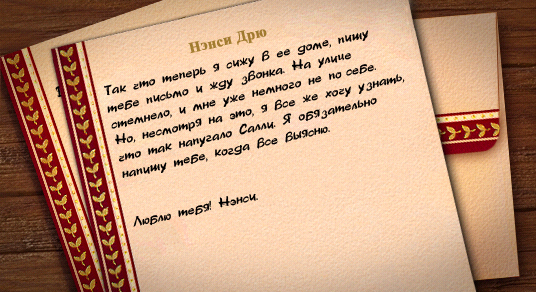 Нэнси Дрю
Так что теперь я сижу в ее доме, пишу
тебе письмо и жду звонка. На улице
стемнело, и мне уже немного не по себе.
Но, несмотря на это, я все же хочу узнать,
что так напугало Салли. Я обязательно
напишу тебе, когда все выясню.
Люблю тебя! Нэнси.